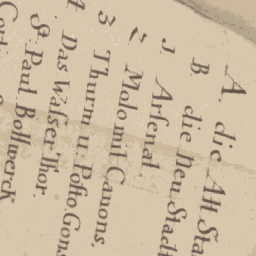 A. die Alt Sta
B. die Neu. Stadt
1 Arsenal.
2 Molo mit Canons.
3 Thurm u. Posto. Gons
4 Das Wasser Thor.
St. Paul. Bollwerck